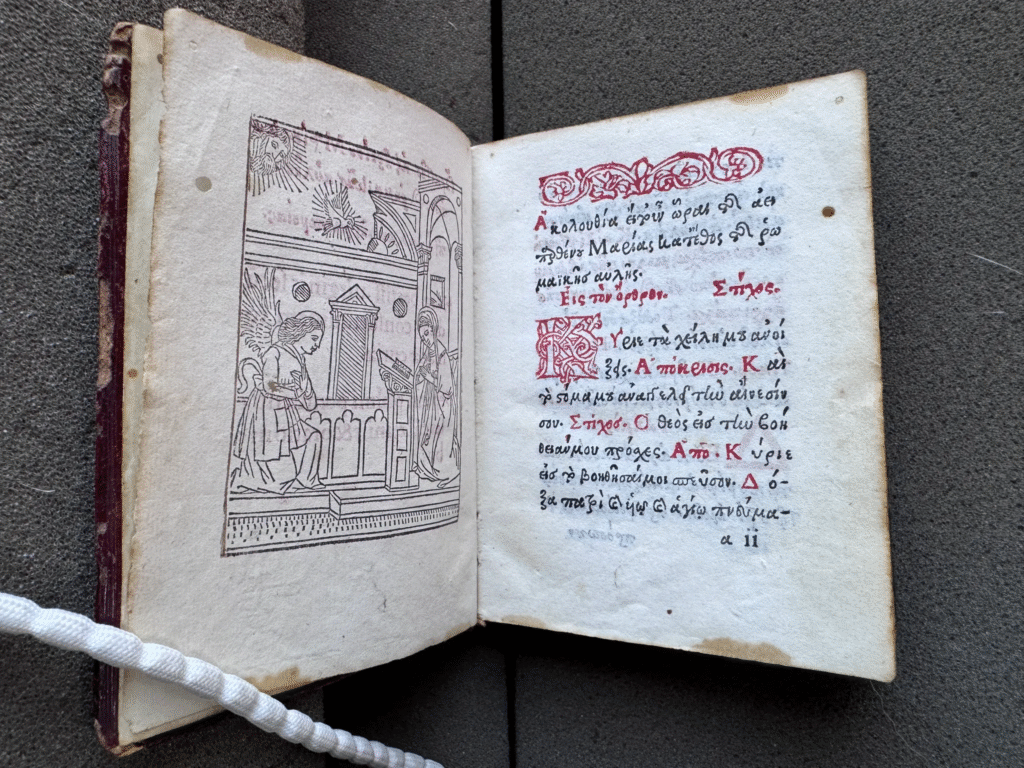 Ἀκολουθία εἴτουν ὧραι τῆς ἀει
παρθένου Μαρίας κατ᾽ ἔθος τῆς ῥω
μαϊκῆς αὐλῆς.
Εἰς τὸν ὄρθρον. Στίχος.
Κύριε τὰ χείλη μου ἀνοί
ξεις. Ἀπόκρισις. Καὶ
τὸ στόμα μου ἀναγγελεῖ τὴν αἴνεσίν
σου. Στίχος. Ὁ θεὸς εἰς τὴν βοή
θειάν μου πρόσχες. Ἀπό. Κύριε
εἰς τὸ βοηθῆσαί μοι σπεῦσον. Δό-
ξα πατρὶ καὶ υἱῷ καὶ ἁγίῳ πνεύμα-
a ii